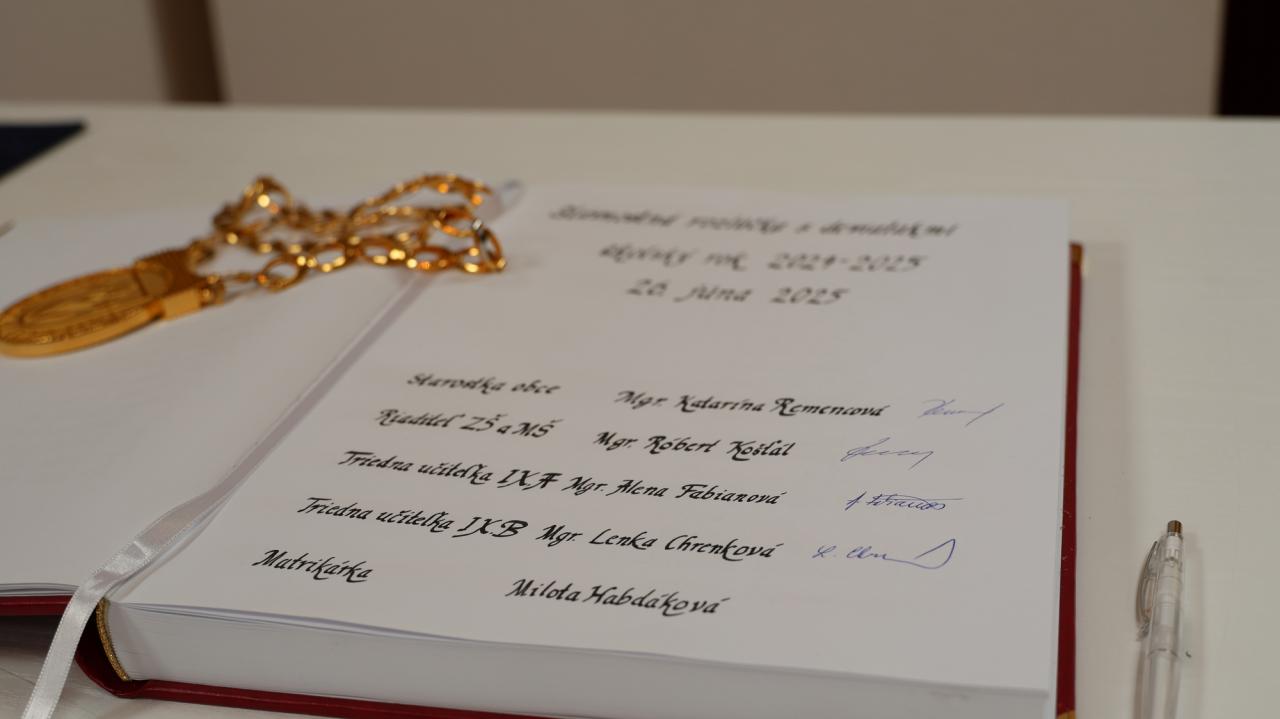 Slávnostná rozlúčka s deviatakmi
školský rok 2024-2025
26. júna 2025
Starostka obce Mgr. Katarína Remencová
Riaditeľ ZŠ a MŠ Mgr. Róbert Košťál
Triedna učiteľka IX.A Mgr. Alena Fabianová
Triedna učiteľka IX.B Mgr. Lenka Chrenková
Matrikárka Milota Habdáková